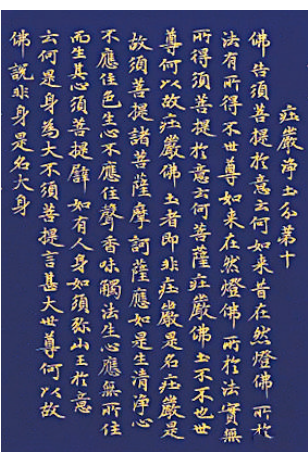 莊嚴淨土分第十
佛告須菩提於意云何如来昔在然燈佛所於
法有所得不世尊如来在然燈佛所於法實無
所得須菩提於意云何菩薩莊嚴佛土不不也世
尊何以故莊嚴佛土者即非莊嚴是名莊嚴是
故須菩提諸菩薩摩訶薩應如是生清淨心
不應住色生心不應住聲香味觸法生心應無所住
而生其心須菩提譬如有人身如須弥山王於意
云何是身為大不須菩提言甚大世尊何以故
佛說非身是名大身